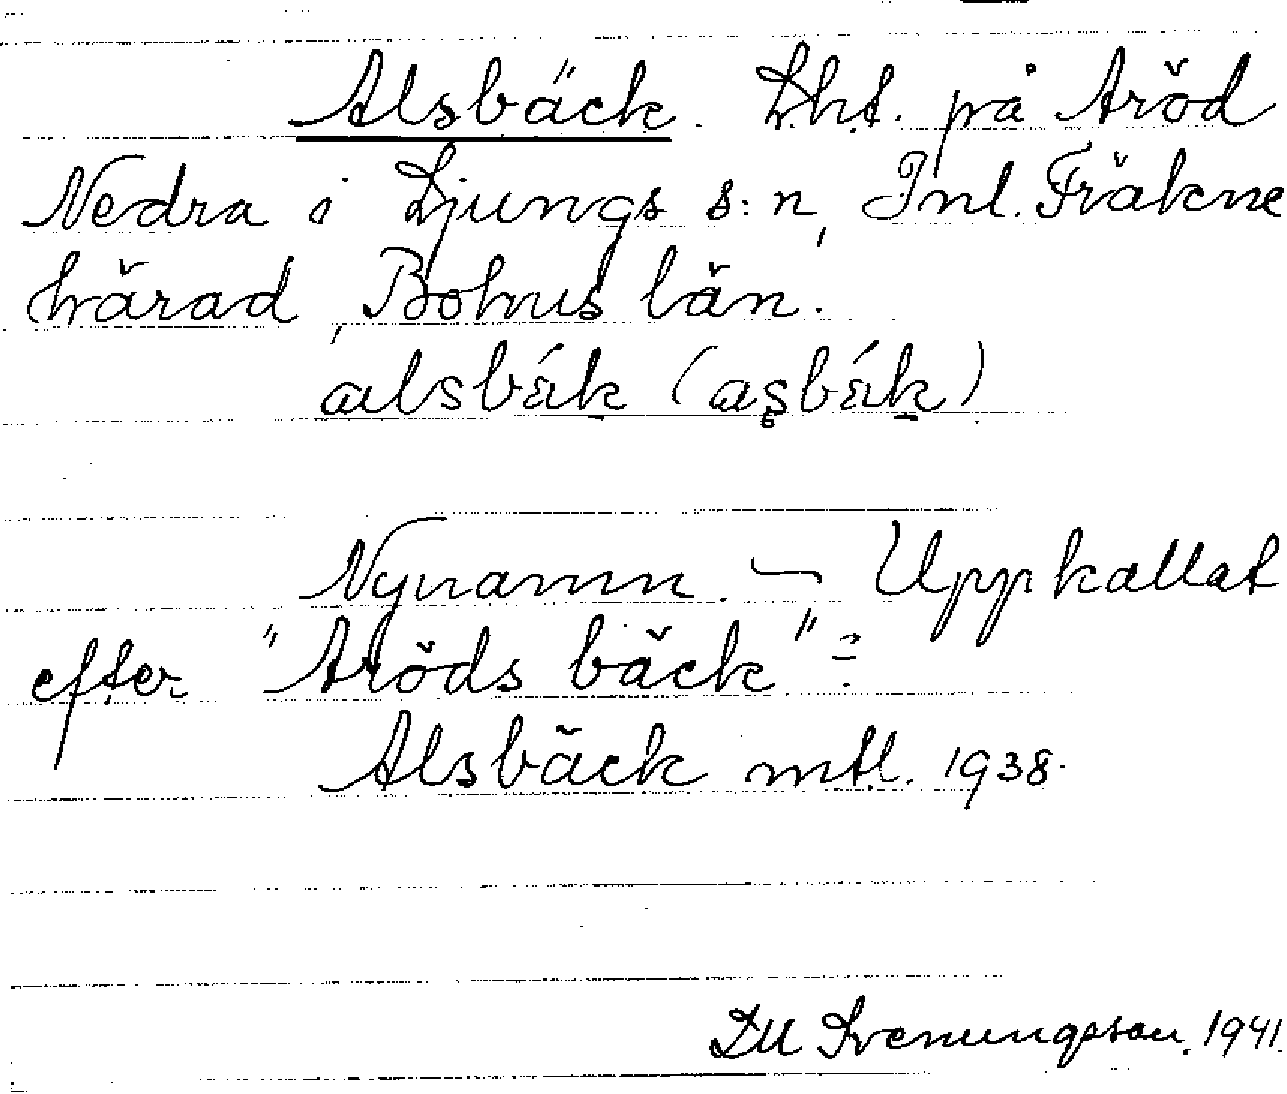 Alsbäck. Lht. på Aröd
Nedra i Ljungs s:n, Inl. Fräkne
härad, Bohus län.
alsbǽk (aşbǽk)
Nynamn. — Uppkallat
efter "Aröds bäck":
Alsbäck mtl. 1938.
Svenungsson. 1941.